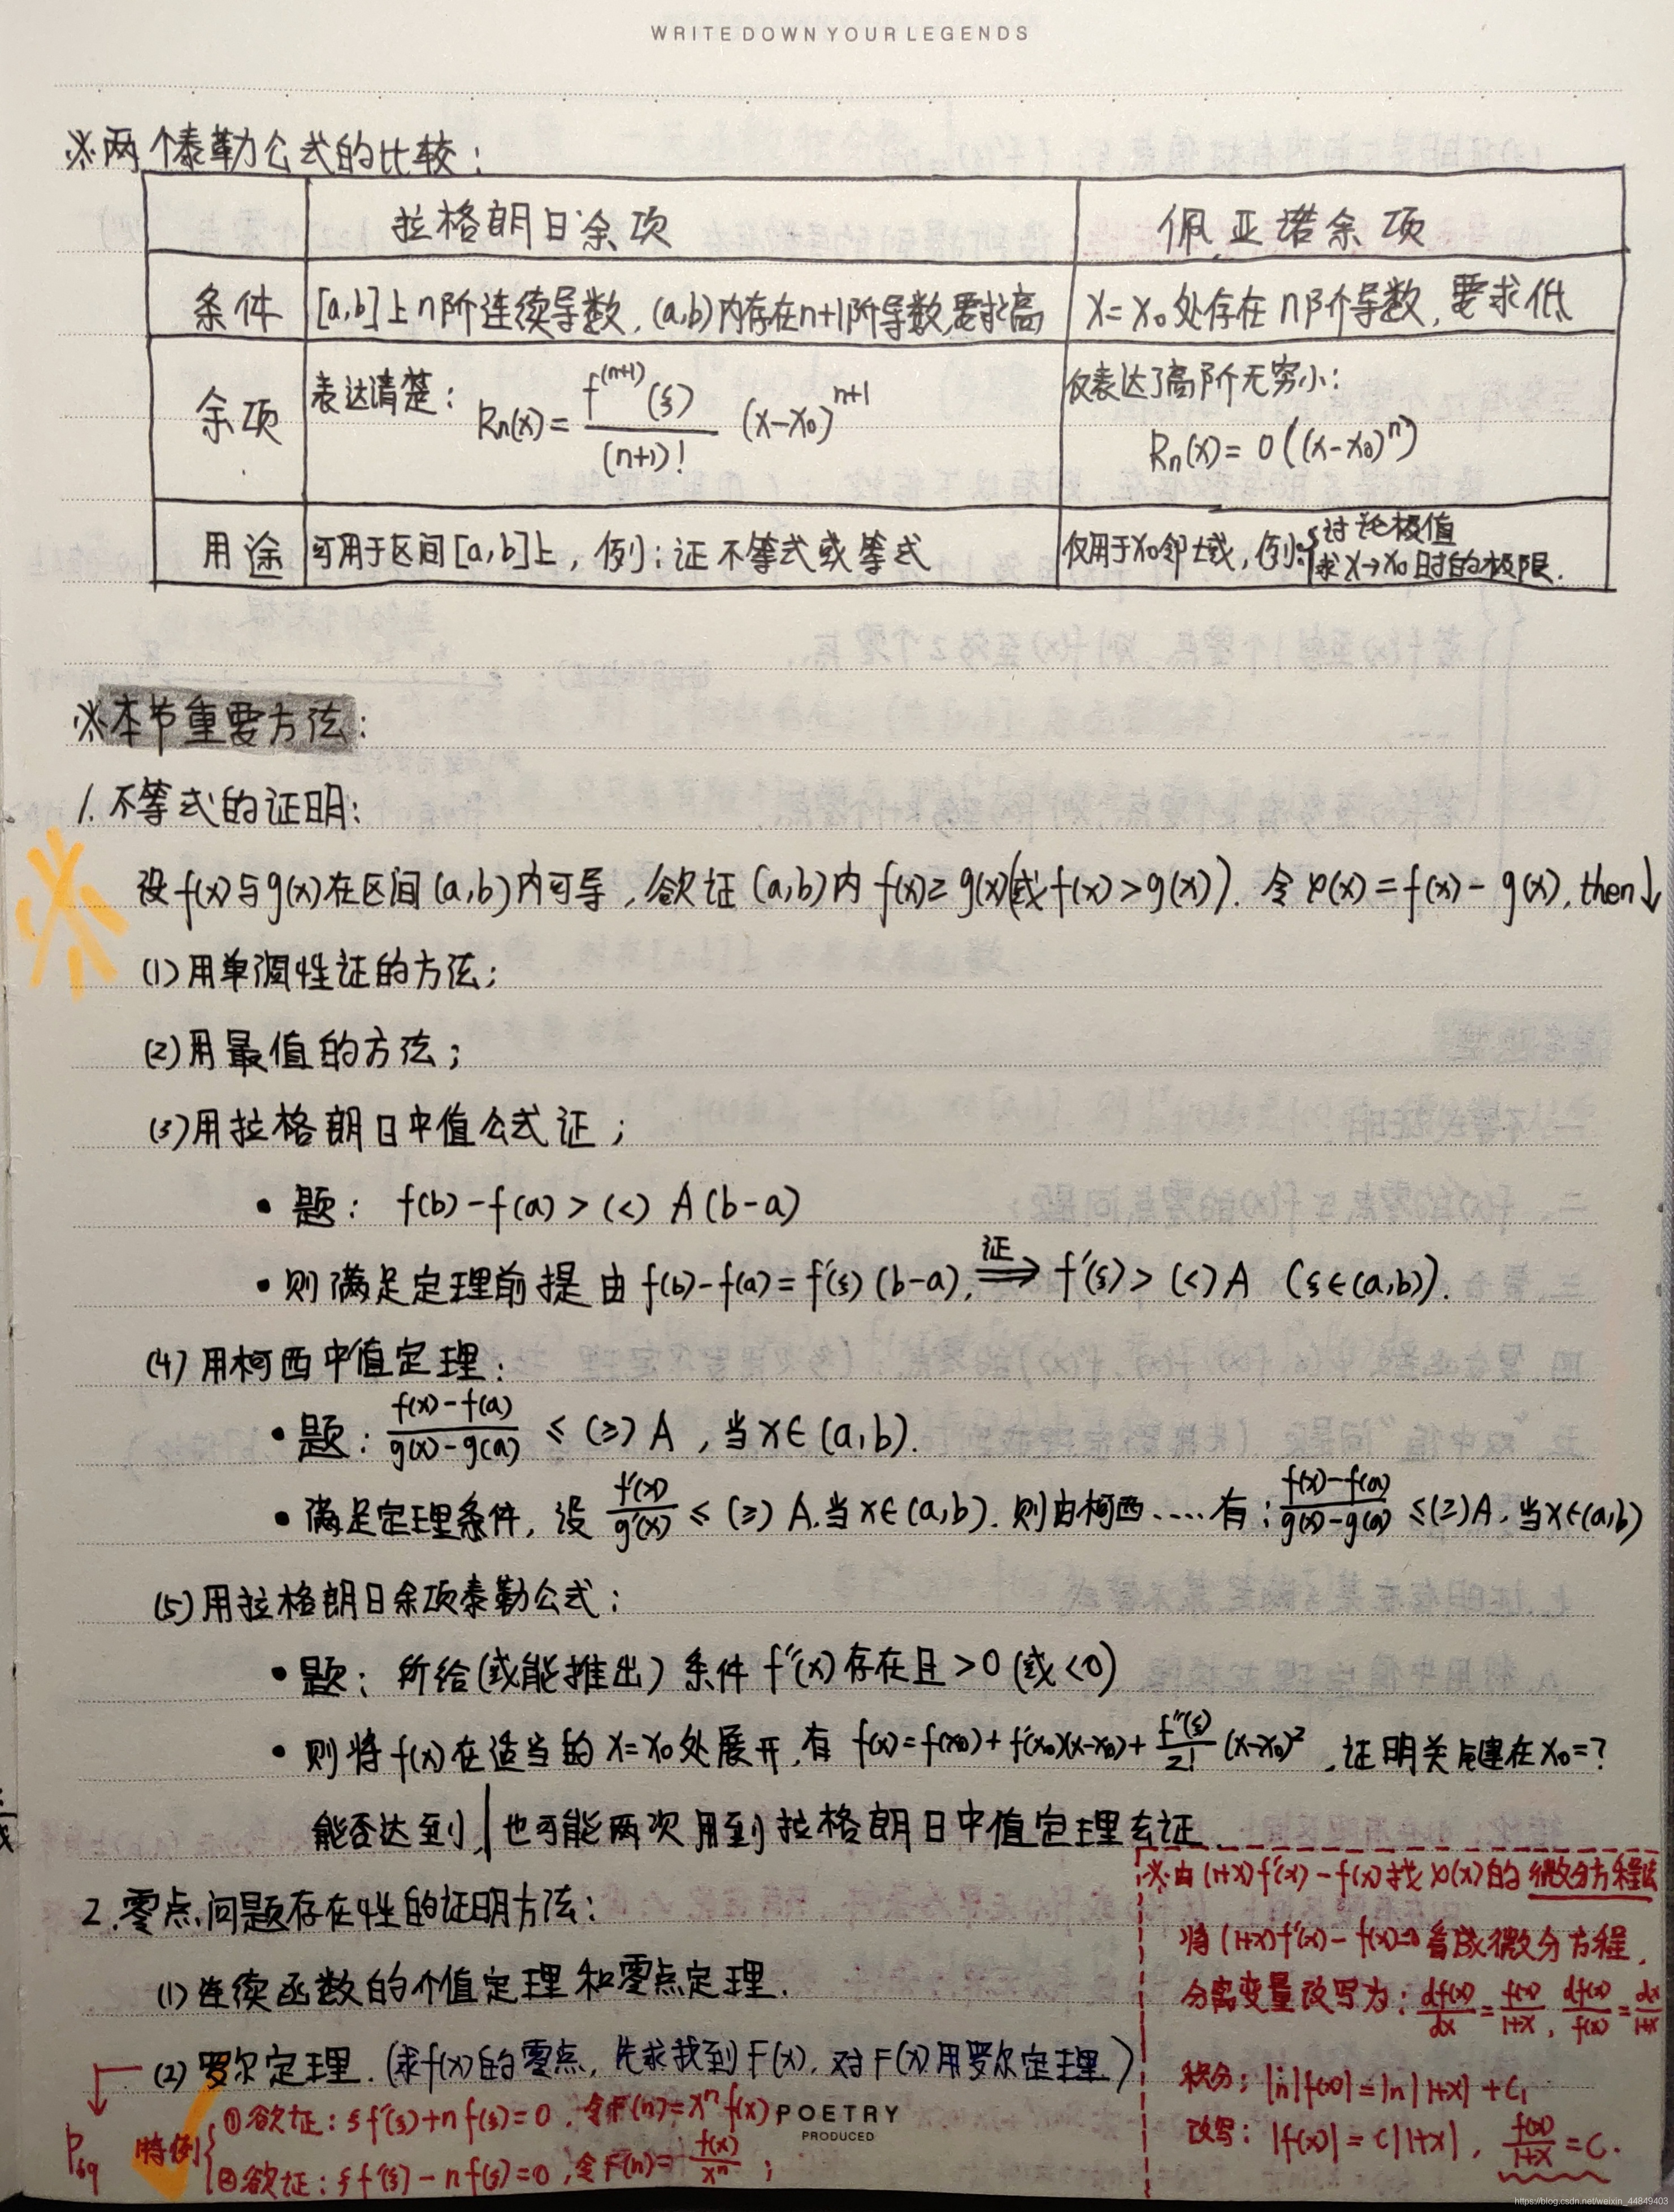 WRITE DOWN YOUR LEGENDS
※两个泰勒公式的比较:
拉格朗日余项 佩亚诺余项
条件 [a,b]上n阶连续导数,(a,b)内存在n+1阶导数,要求高 x=x₀处存在n阶导数,要求低
余项 表达清楚: Rn(x)= f⁽ⁿ⁺¹⁾(ξ)/(n+1)! (x-x₀)ⁿ⁺¹ 仅表达了高阶无穷小: Rn(x)=o((x-x₀)ⁿ)
用途 可用于区间[a,b]上,例:证不等式或等式 仅用于x₀邻域,例:{讨论极值 求x→x₀时的极限.
※本节重要方法:
1.不等式的证明:
设f(x)与g(x)在区间(a,b)内可导,欲证(a,b)内f(x)≥g(x)(或f(x)>g(x)). 令φ(x)=f(x)-g(x), then↓
(1)用单调性证的方法;
(2)用最值的方法;
(3)用拉格朗日中值公式证;
•题: f(b)-f(a)>(<) A(b-a)
•则满足定理前提由f(b)-f(a)=f'(ξ)(b-a), 证⟹ f'(ξ)>(<)A (ξ∈(a,b)).
(4)用柯西中值定理:
•题: (f(x)-f(a))/(g(x)-g(a)) ≤(≥) A, 当x∈(a,b).
•满足定理条件, 设 f'(x)/g'(x) ≤(≥) A,当x∈(a,b). 则由柯西……有: (f(x)-f(a))/(g(x)-g(a)) ≤(≥)A, 当x∈(a,b)
(5)用拉格朗日余项泰勒公式:
•题: 所给(或能推出)条件f''(x)存在且>0(或<0)
•则将f(x)在适当的x=x₀处展开,有 f(x)=f(x₀)+f'(x₀)(x-x₀)+ f''(ξ)/2! (x-x₀)² ,证明关键在x₀=?
能否达到|也可能两次用到拉格朗日中值定理去证.
2.零点问题存在性的证明方法:
(1)连续函数的介值定理和零点定理.
(2)罗尔定理.(求f(x)的零点, 先求找到F(x), 对F(x)用罗尔定理)
P69
特例{①欲证: ξf'(ξ)+nf(ξ)=0, 令F(n)=xⁿf(x)
②欲证: ξf'(ξ)-nf(ξ)=0, 令F(n)= f(x)/xⁿ ;
POETRY
PRODUCED
※由(1+x)f'(x)-f(x)找φ(x)的微分方程法
将(1+x)f'(x)-f(x)=0看成微分方程,
分离变量改写为: df(x)/dx = f(x)/(1+x), df(x)/f(x) = dx/(1+x)
积分: ln|f(x)|=ln|1+x|+C₁
改写: |f(x)|=C|1+x|, f(x)/(1+x) =C.
https://blog.csdn.net/weixin_44849403